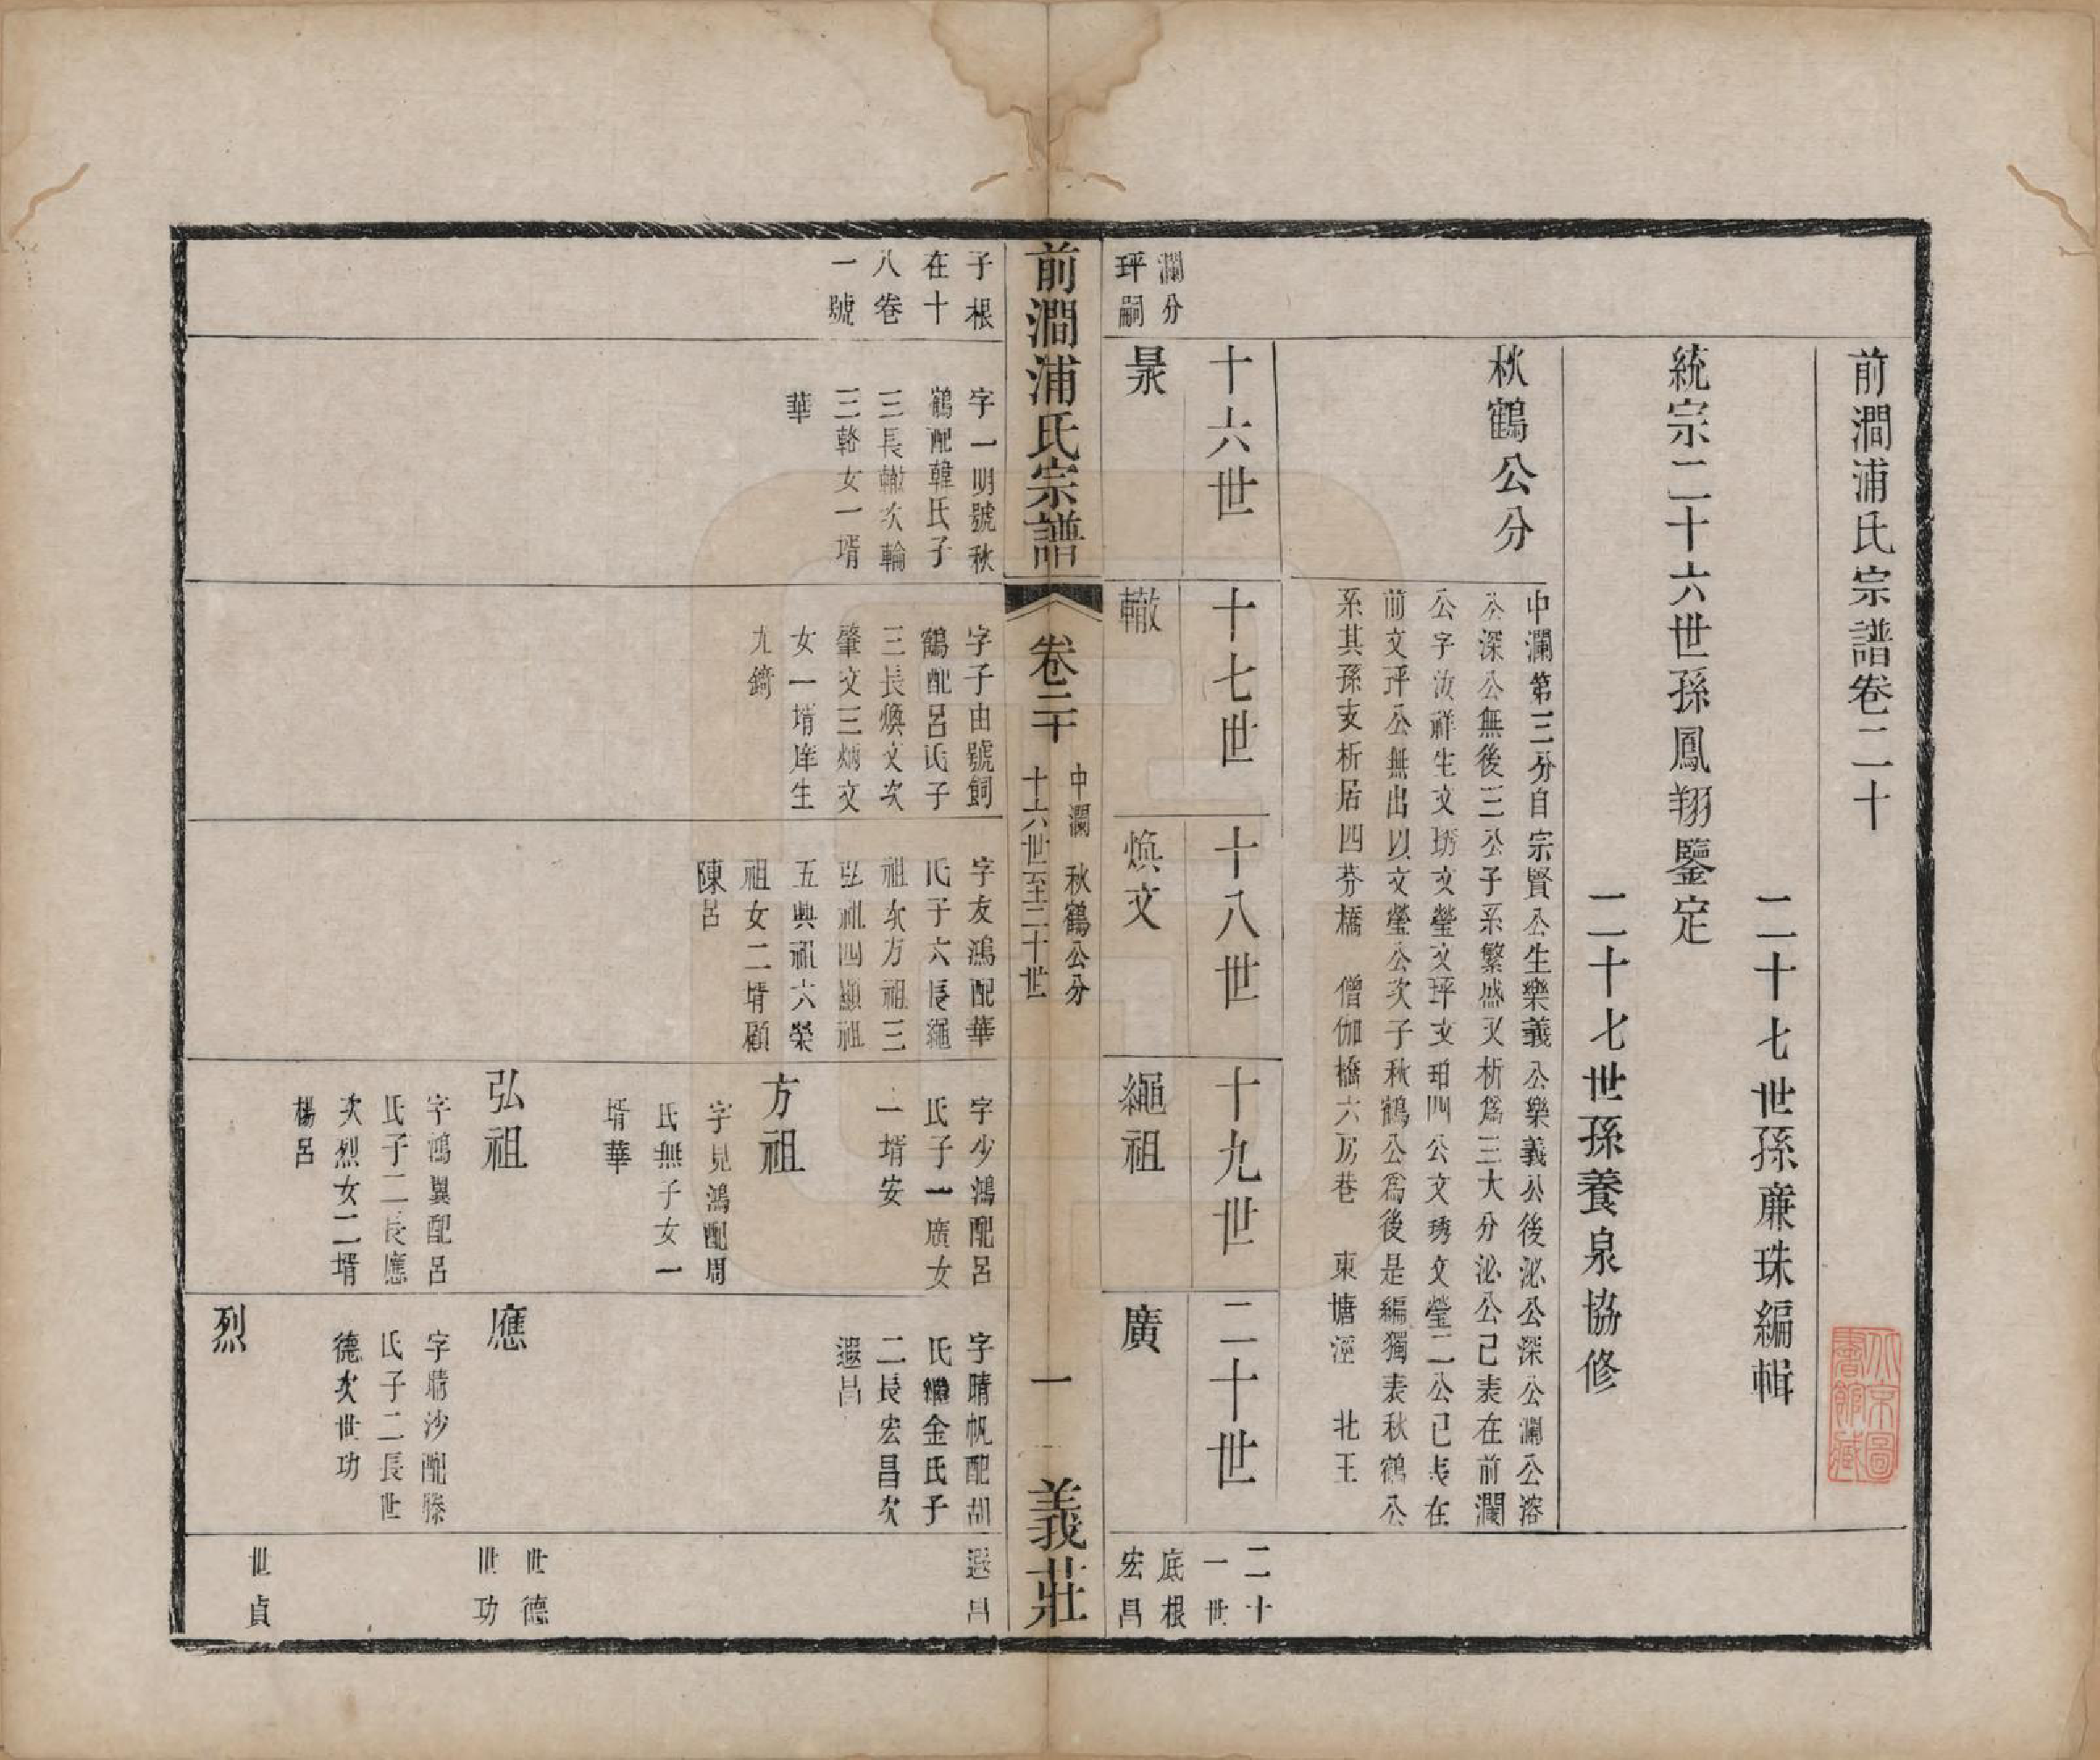 前澗浦氏宗譜卷二十
二十七世孫廉珠編輯
統宗二十六世孫鳳翔鑒定
二十七世孫養泉協修
秋鶴公分
中瀾第三分自宗賢公生樂義公樂義公後泌公深公瀾公溶
公深公無後三公子系繁盛又析爲三大分泌公已表在前瀾
公字汝祥生文琇文瑩文玶文珀四公文琇文瑩二公已表在
前文玶公無出以文瑩公次子秋鶴公爲後是編獨表秋鶴公
系其孫支析居四芬橋 僧伽橋六房巷 東塘涇 北王
十六世
十七世
十八世
十九世
二十世
二十
一世
瀾分
玶嗣
轍
煥文
繩祖
廣
底根
宏昌
前澗浦氏宗譜
卷二十
中瀾 秋鶴公分
十六世至二十世
一
義莊
子根
在十
八卷
一號
字一明號秋
鶴配韓氏子
三長轍次輪
三輅女一壻
華
字子由號飼
鶴配呂氏子
三長煥文次
肇文三炳文
女一壻庠生
九錡
字友鴻配華
氏子六長繩
祖次方祖三
弘祖四顯祖
五興祖六榮
祖女二壻顧
陳呂
字少鴻配呂
氏子一廣女
一壻安
方祖
字見鴻配周
氏無子女一
壻華
弘祖
字鴻異配呂
氏子二長應
次烈女二壻
楊呂
字晴帆配胡
氏繼金氏子
二長宏昌次
遐昌
應
字晴沙配滕
氏子二長世
德次世功
烈
遐昌
世德
世功
世貞
北京圖
書館藏